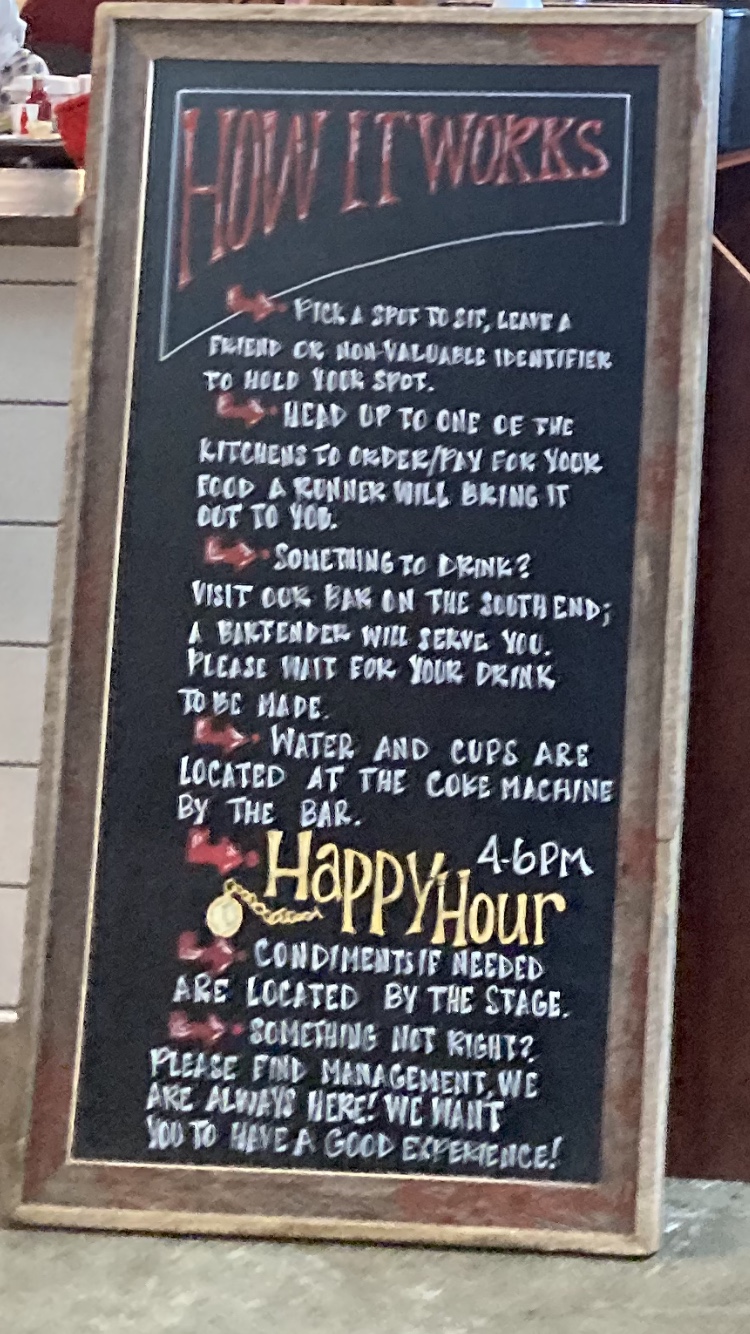 HOW IT WORKS
PICK A SPOT TO SIT, LEAVE A
FRIEND OR NON-VALUABLE IDENTIFIER
TO HOLD YOUR SPOT.
HEAD UP TO ONE OF THE
KITCHENS TO ORDER/PAY FOR YOUR
FOOD A RUNNER WILL BRING IT
OUT TO YOU.
SOMETHING TO DRINK?
VISIT OUR BAR ON THE SOUTH END;
A BARTENDER WILL SERVE YOU.
PLEASE WAIT FOR YOUR DRINK
TO BE MADE.
WATER AND CUPS ARE
LOCATED AT THE COKE MACHINE
BY THE BAR.
HAPPY HOUR 4-6PM
CONDIMENTS IF NEEDED
ARE LOCATED BY THE STAGE.
SOMETHING NOT RIGHT?
PLEASE FIND MANAGEMENT, WE
ARE ALWAYS HERE! WE WANT
YOU TO HAVE A GOOD EXPERIENCE!